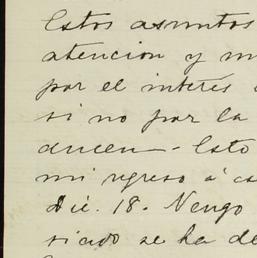 Estos asuntos
atencion y m
por el interés
si no por la
ducen. Esto
mi regreso á ca
Dic. 18. Vengo
siado se ha de